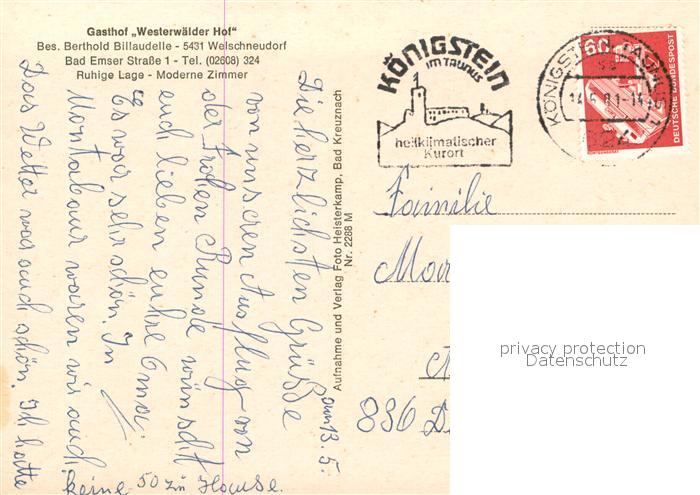 Gasthof „Westerwälder Hof"
Bes. Berthold Billaudelle - 5431 Welschneudorf
Bad Emser Straße 1 - Tel. (02608) 324
Ruhige Lage - Moderne Zimmer
Die herzlichsten Grüße
von unseren Ausflug von
der Frohen Runde wünscht
euch lieben euhre Oma.
Es war sehr schön. In
Montabaur waren wir auch
Das Wetter war auch schön. Ich hatte
keine 50 zu Hause.
am 13. 5.
Aufnahme und Verlag Foto Heisterkamp, Bad Kreuznach
Nr. 2288 M
KÖNIGSTEIN
IM TAUNUS
heilklimatischer
Kurort
KÖNIGSTEIN
60
DEUTSCHE BUNDESPOST
Familie
836 D
privacy protection
Datenschutz